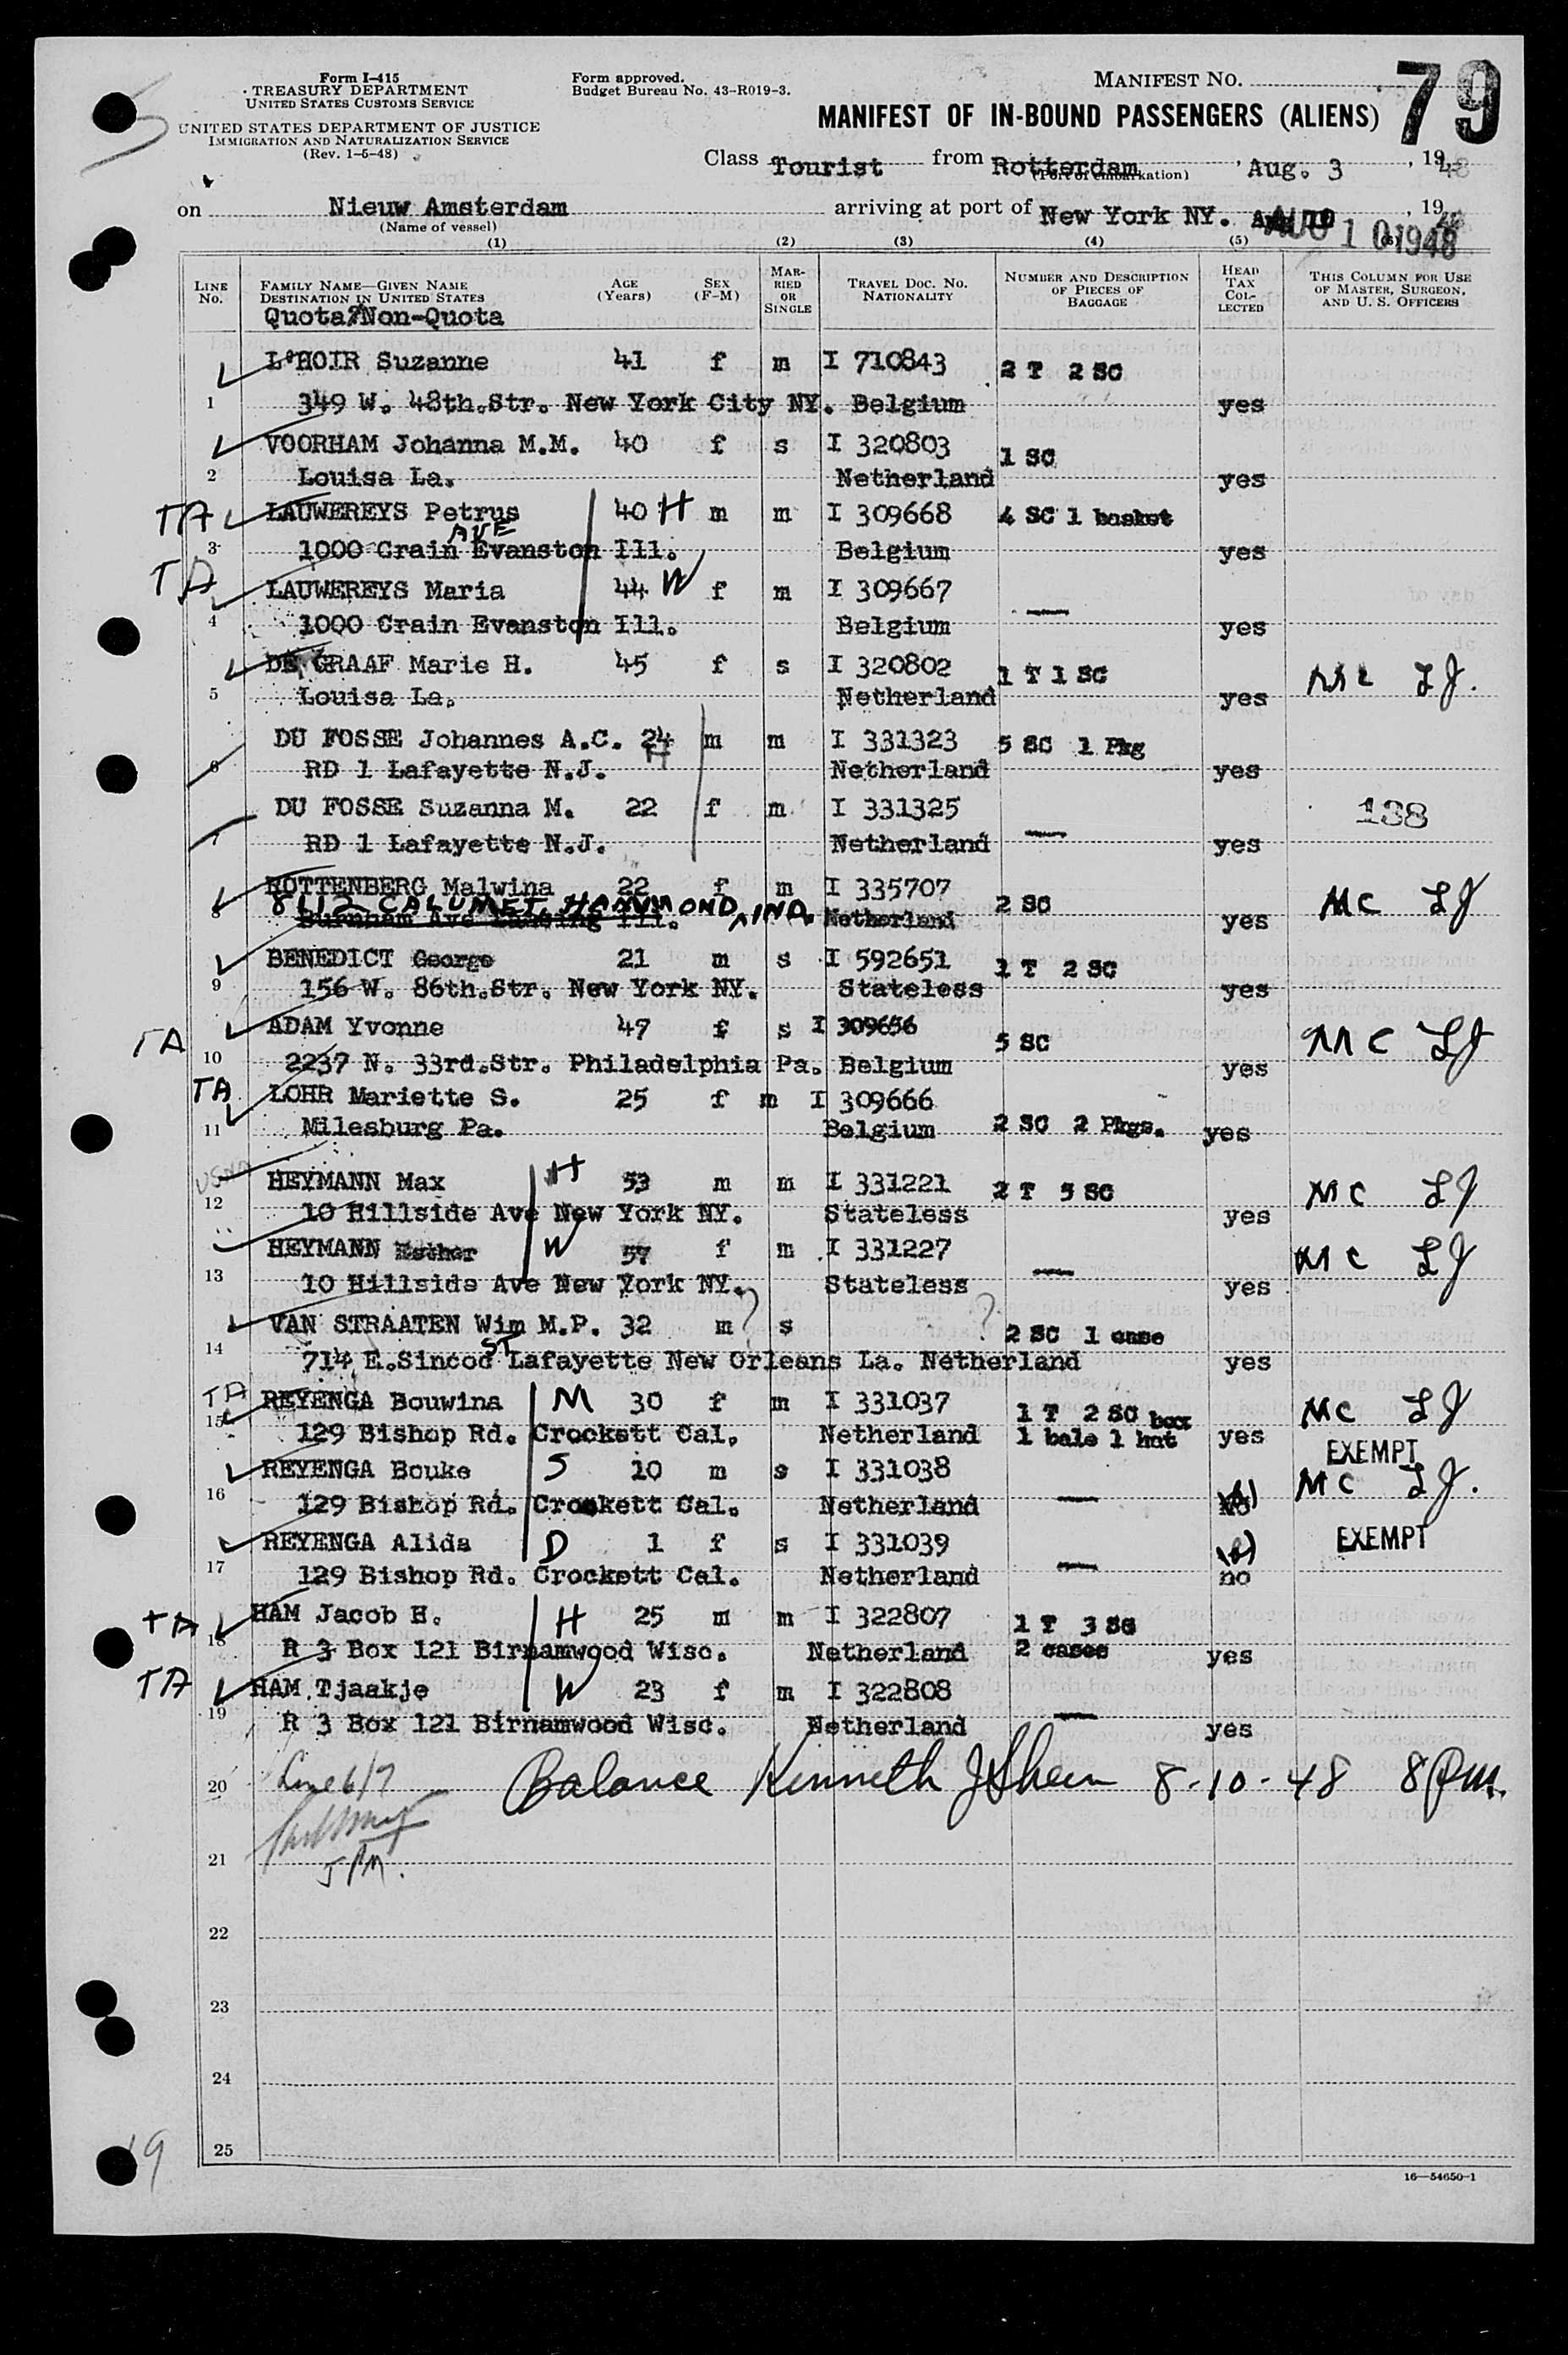 Form I-415
TREASURY DEPARTMENT
UNITED STATES CUSTOMS SERVICE
UNITED STATES DEPARTMENT OF JUSTICE
IMMIGRATION AND NATURALIZATION SERVICE
(Rev. 1-5-48)
Form approved.
Budget Bureau No. 43-R019-3.
MANIFEST NO. 79
MANIFEST OF IN-BOUND PASSENGERS (ALIENS)
Class Tourist from Rotterdam, Aug. 3, 1948
(Port of embarkation)
on Nieuw Amsterdam arriving at port of New York NY. AUG 10 1948, 19
(Name of vessel)
(1) (2) (3) (4) (5)
LINE No. FAMILY NAME—GIVEN NAME DESTINATION IN UNITED STATES AGE (Years) SEX (F-M) MARRIED OR SINGLE TRAVEL DOC. NO. NATIONALITY NUMBER AND DESCRIPTION OF PIECES OF BAGGAGE HEAD TAX COLLECTED THIS COLUMN FOR USE OF MASTER, SURGEON, AND U. S. OFFICERS
Quota/Non-Quota
L'HOIR Suzanne 41 f m I 710843 2 T 2 SC
1 349 W. 48th.Str. New York City NY. Belgium yes
VOORHAM Johanna M.M. 40 f s I 320803 1 SC
2 Louisa La. Netherland yes
TA LAUWEREYS Petrus 40 H m m I 309668 4 SC 1 basket
AVE
3 1000 Crain Evanston Ill. Belgium yes
TA LAUWEREYS Maria 44 W f m I 309667 —
4 1000 Crain Evanston Ill. Belgium yes
DE GRAAF Marie H. 45 f s I 320802 1 T 1 SC LJ.
5 Louisa La. Netherland yes
DU FOSSE Johannes A.C. 24 H m m I 331323 5 SC 1 Pkg
6 RD 1 Lafayette N.J. Netherland yes
DU FOSSE Suzanna M. 22 f m I 331325 — 138
7 RD 1 Lafayette N.J. Netherland yes
ROTTENBERG Malwina 22 f m I 335707 2 SC MC LJ
8112 CALUMET HAMMOND, IND.
8 Burnham Ave Lansing Ill. Netherland yes
BENEDICT George 21 m s I 592651 1 T 2 SC
9 156 W. 86th.Str. New York NY. Stateless yes
TA ADAM Yvonne 47 f s I 309656 5 SC MC LJ
10 2237 N. 33rd.Str. Philadelphia Pa. Belgium yes
TA LOHR Mariette S. 25 f m I 309666
11 Milesburg Pa. Belgium 2 SC 2 Pkgs. yes
HEYMANN Max H 53 m m I 331221 2 T 5 SC MC LJ
12 10 Hillside Ave New York NY. Stateless yes
HEYMANN Esther W 57 f m I 331227 — MC LJ
13 10 Hillside Ave New York NY. Stateless yes
VAN STRAATEN Wim M.P. 32 m ? s ? 2 SC 1 case
ST
14 714 E.Sincod Lafayette New Orleans La. Netherland yes
TA REYENGA Bouwina M 30 f m I 331037 1 T 2 SC box MC LJ
15 129 Bishop Rd. Crockett Cal. Netherland 1 bale 1 hat yes EXEMPT
REYENGA Bouke S 10 m s I 331038 — MC LJ.
16 129 Bishop Rd. Crockett Cal. Netherland no
REYENGA Alida D 1 f s I 331039 — EXEMPT
17 129 Bishop Rd. Crockett Cal. Netherland no
TA HAM Jacob H. H 25 m m I 322807 1 T 3 SC
18 R 3 Box 121 Birnamwood Wisc. Netherland 2 cases yes
TA HAM Tjaakje W 23 f m I 322808 —
19 R 3 Box 121 Birnamwood Wisc. Netherland yes
20 Line 6/7 Balance Kenneth J Sheen 8-10-48 8 PM.
21 5 PM.
22
23
24
25
19
16—54650-1